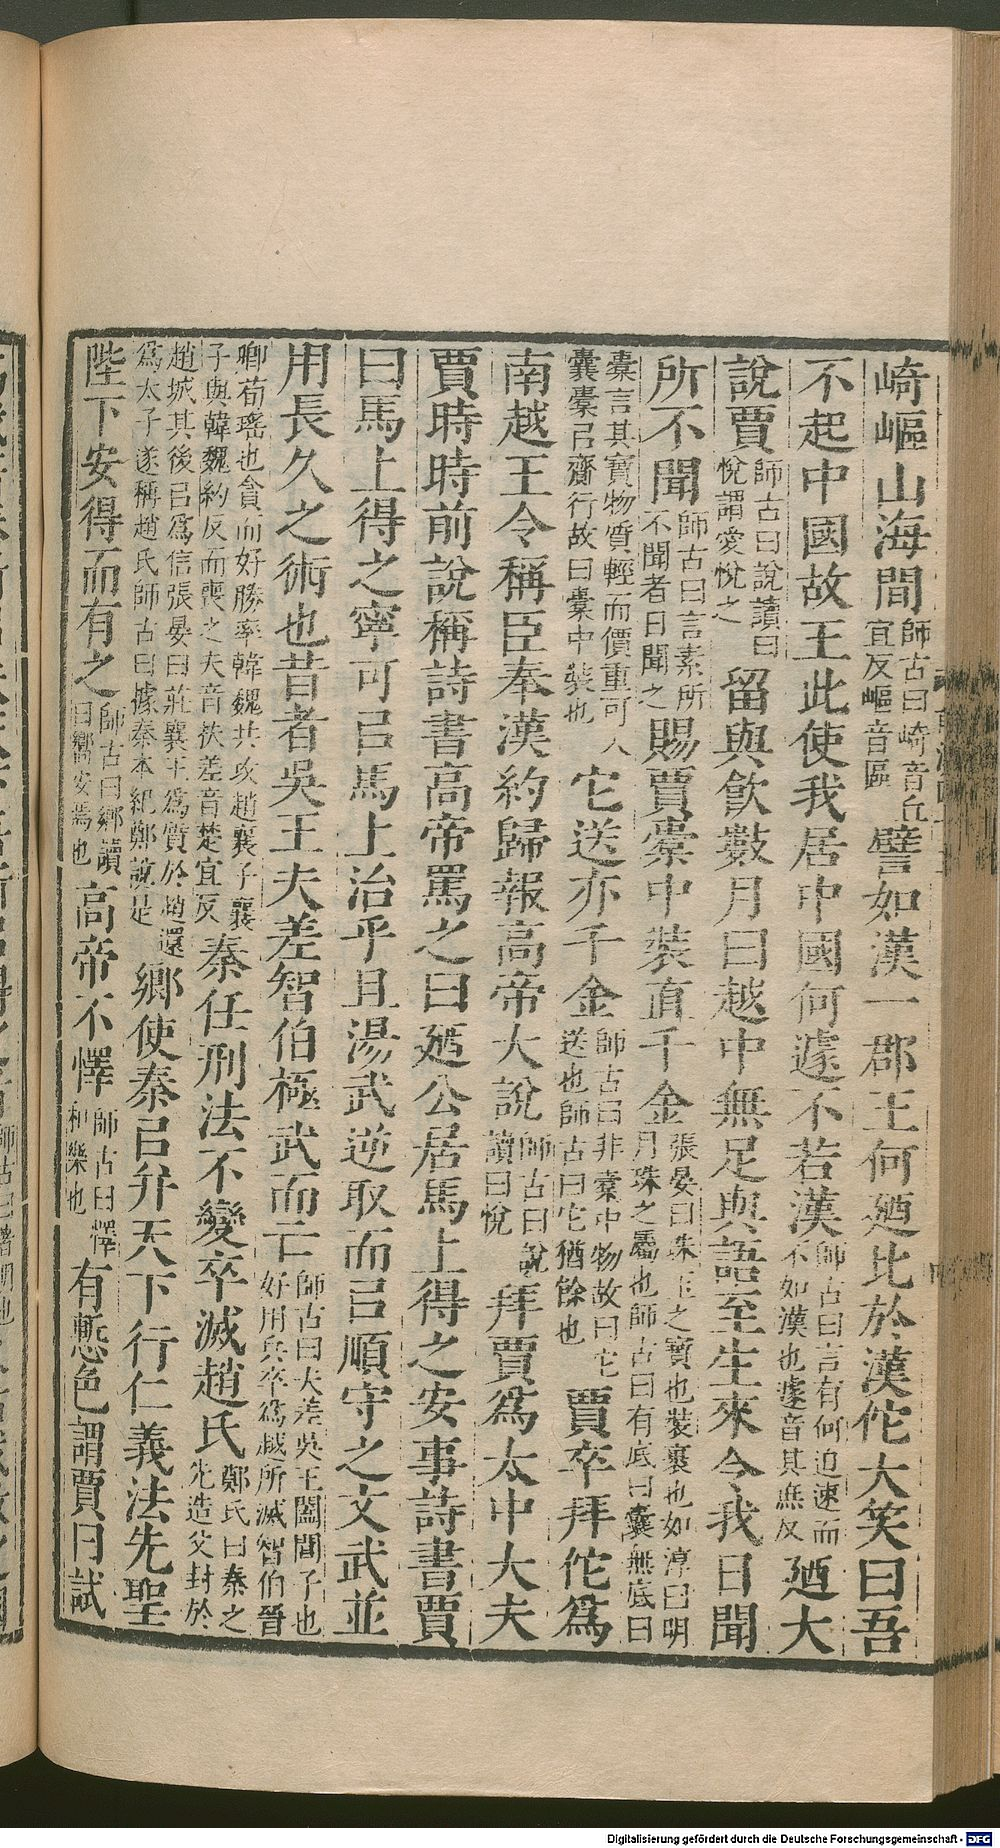 崎嶇山海間師古曰崎音丘宜反嶇音區譬如漢一郡王何廼比於漢佗大笑曰吾
不起中國故王此使我居中國何遽不若漢師古曰言有何迫速而不如漢也遽音其庶反廼大
說賈師古曰說讀曰悅謂愛悅之留與飲數月曰越中無足與語至生來令我日聞
所不聞師古曰言素所不聞者日聞之賜賈橐中裝直千金張晏曰珠玉之寶也裝裹也如淳曰明月珠之屬也師古曰有底曰囊無底曰
橐言其寶物質輕而價重可入囊橐㠯齎行故曰橐中裝也它送亦千金師古曰非橐中物故曰它送也師古曰它猶餘也賈卒拜佗爲
南越王令稱臣奉漢約歸報高帝大說師古曰說讀曰悅拜賈爲太中大夫
賈時時前說稱詩書高帝罵之曰廼公居馬上得之安事詩書賈
曰馬上得之寧可㠯馬上治乎且湯武逆取而㠯順守之文武並
用長久之術也昔者吳王夫差智伯極武而亡師古曰夫差吳王闔閭子也好用兵卒爲越所滅智伯晉
卿荀瑤也貪而好勝率韓魏共攻趙襄子襄子與韓魏約反而喪之夫音扶差音楚宜反秦任刑法不變卒滅趙氏鄭氏曰秦之先造父封於
趙城其後㠯爲信張晏曰莊襄王爲質於趙還爲太子遂稱趙氏師古曰據秦本紀鄭說是鄉使秦㠯幷天下行仁義法先聖
陛下安得而有之師古曰鄉讀曰嚮安焉也高帝不懌師古曰懌和樂也有慙色謂賈曰試
DFG
Digitalisierung gefördert durch die Deutsche Forschungsgemeinschaft -